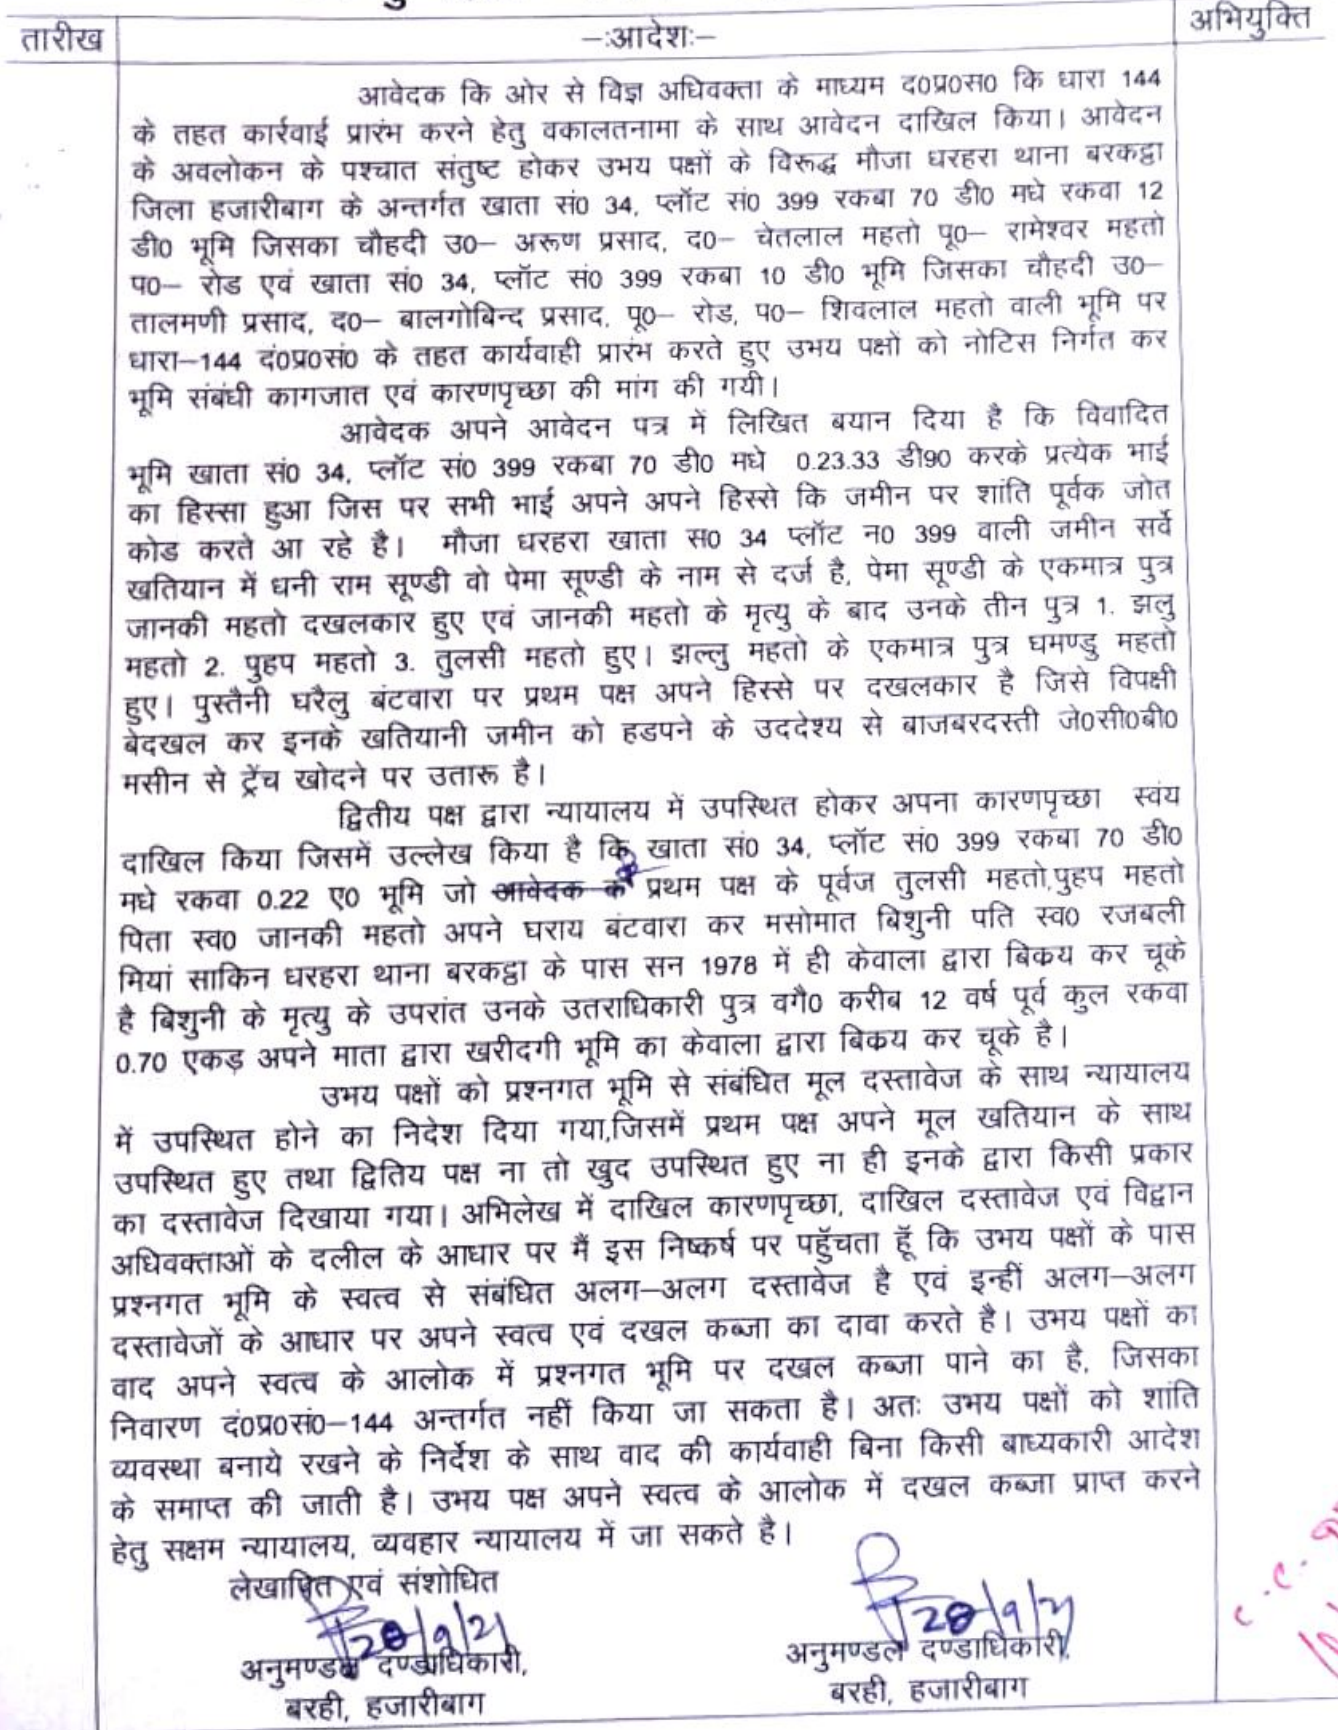 तारीख
-:आदेश:-
अभियुक्ति
आवेदक कि ओर से विज्ञ अधिवक्ता के माध्यम द०प्र०स० कि धारा 144
के तहत कार्रवाई प्रारंभ करने हेतु वकालतनामा के साथ आवेदन दाखिल किया। आवेदन
के अवलोकन के पश्चात संतुष्ट होकर उभय पक्षों के विरूद्ध मौजा धरहरा थाना बरकट्ठा
जिला हजारीबाग के अन्तर्गत खाता सं0 34, प्लॉट सं0 399 रकबा 70 डी0 मधे रकवा 12
डी0 भूमि जिसका चौहदी उ0– अरूण प्रसाद, द0– चेतलाल महतो पू0– रामेश्वर महतो
प0– रोड एवं खाता सं0 34, प्लॉट सं0 399 रकबा 10 डी0 भूमि जिसका चौहदी उ0–
तालमणी प्रसाद, द0– बालगोबिन्द प्रसाद, पू0– रोड, प0– शिवलाल महतो वाली भूमि पर
धारा–144 दं0प्र0सं0 के तहत कार्यवाही प्रारंभ करते हुए उभय पक्षों को नोटिस निर्गत कर
भूमि संबंधी कागजात एवं कारणपृच्छा की मांग की गयी।
आवेदक अपने आवेदन पत्र में लिखित बयान दिया है कि विवादित
भूमि खाता सं0 34, प्लॉट सं0 399 रकबा 70 डी0 मधे 0.23.33 डी90 करके प्रत्येक भाई
का हिस्सा हुआ जिस पर सभी भाई अपने अपने हिस्से कि जमीन पर शांति पूर्वक जोत
कोड करते आ रहे है। मौजा धरहरा खाता स0 34 प्लॉट न0 399 वाली जमीन सर्वे
खतियान में धनी राम सूण्डी वो पेमा सूण्डी के नाम से दर्ज है, पेमा सूण्डी के एकमात्र पुत्र
जानकी महतो दखलकार हुए एवं जानकी महतो के मृत्यु के बाद उनके तीन पुत्र 1. झलु
महतो 2. पुहप महतो 3. तुलसी महतो हुए। झल्लु महतो के एकमात्र पुत्र घमण्डु महतो
हुए। पुस्तैनी घरैलु बंटवारा पर प्रथम पक्ष अपने हिस्से पर दखलकार है जिसे विपक्षी
बेदखल कर इनके खतियानी जमीन को हडपने के उददेश्य से बाजबरदस्ती जे0सी0बी0
मसीन से ट्रेंच खोदने पर उतारू है।
द्वितीय पक्ष द्वारा न्यायालय में उपस्थित होकर अपना कारणपृच्छा स्वंय
दाखिल किया जिसमें उल्लेख किया है कि खाता सं0 34, प्लॉट सं0 399 रकबा 70 डी0
मधे रकवा 0.22 ए0 भूमि जो आवेदक के प्रथम पक्ष के पूर्वज तुलसी महतो,पुहप महतो
पिता स्व0 जानकी महतो अपने घराय बंटवारा कर मसोमात बिशुनी पति स्व0 रजबली
मियां साकिन धरहरा थाना बरकट्ठा के पास सन 1978 में ही केवाला द्वारा बिकय कर चूके
है बिशुनी के मृत्यु के उपरांत उनके उतराधिकारी पुत्र वगै0 करीब 12 वर्ष पूर्व कुल रकवा
0.70 एकड़ अपने माता द्वारा खरीदगी भूमि का केवाला द्वारा बिकय कर चूके है।
उभय पक्षों को प्रश्नगत भूमि से संबंधित मूल दस्तावेज के साथ न्यायालय
में उपस्थित होने का निदेश दिया गया,जिसमें प्रथम पक्ष अपने मूल खतियान के साथ
उपस्थित हुए तथा द्वितिय पक्ष ना तो खुद उपस्थित हुए ना ही इनके द्वारा किसी प्रकार
का दस्तावेज दिखाया गया। अभिलेख में दाखिल कारणपृच्छा, दाखिल दस्तावेज एवं विद्वान
अधिवक्ताओं के दलील के आधार पर मैं इस निष्कर्ष पर पहुँचता हूँ कि उभय पक्षों के पास
प्रश्नगत भूमि के स्वत्व से संबंधित अलग–अलग दस्तावेज है एवं इन्हीं अलग–अलग
दस्तावेजों के आधार पर अपने स्वत्व एवं दखल कब्जा का दावा करते है। उभय पक्षों का
वाद अपने स्वत्व के आलोक में प्रश्नगत भूमि पर दखल कब्जा पाने का है, जिसका
निवारण दं0प्र0सं0–144 अन्तर्गत नहीं किया जा सकता है। अतः उभय पक्षों को शांति
व्यवस्था बनाये रखने के निर्देश के साथ वाद की कार्यवाही बिना किसी बाध्यकारी आदेश
के समाप्त की जाती है। उभय पक्ष अपने स्वत्व के आलोक में दखल कब्जा प्राप्त करने
हेतु सक्षम न्यायालय, व्यवहार न्यायालय में जा सकते है।
लेखापित एवं संशोधित
28/9/21 28/9/21
अनुमण्डल दण्डाधिकारी, अनुमण्डल दण्डाधिकारी,
बरही, हजारीबाग बरही, हजारीबाग
C.C.